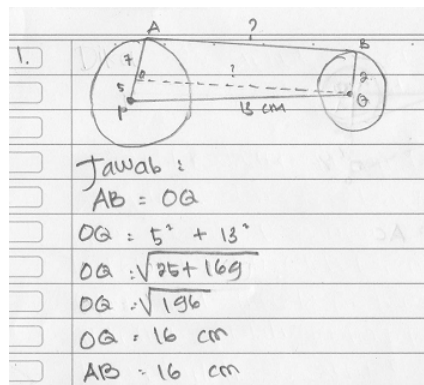 A ?
B
1.
7
0 ? 2
5 Q
P 13 cm
Jawab :
AB = OQ
OQ = 5² + 13²
OQ = √25 + 169
OQ = √196
OQ = 16 cm
AB = 16 cm